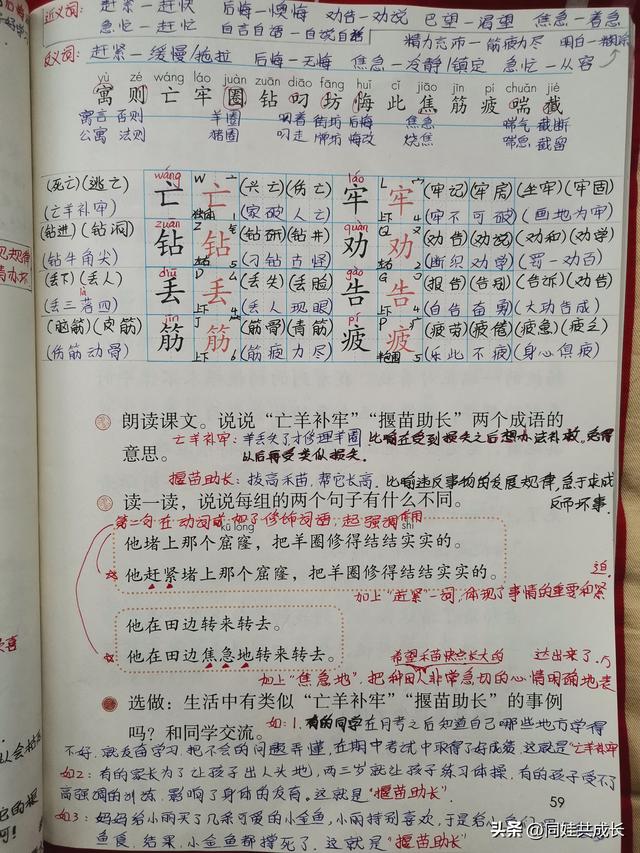 近义词: 赶紧—赶快 后悔—懊悔 劝告—劝说 巴望—渴望 焦急—着急
急忙—赶忙 自言自语—自说自话 精力充沛—筋疲力尽 明白—糊涂
反义词: 赶紧—缓慢/拖拉 后悔—无悔 焦急—冷静/镇定 急忙—从容
yù zé wáng láo juàn zuān diāo fāng huǐ cǐ jiāo jīn pí chuǎn jié
寓则亡牢圈钻叼坊悔此焦筋疲喘截
寓言 否则 羊圈 叼着 街坊 后悔 焦急 喘气 截断
公寓 法则 猪圈 叼走 牌坊 悔改 烧焦 喘息 截留
wáng láo
(死亡)(逃亡) 亡 亡 (兴亡)(伤亡) 牢 牢 (牢记)(牢房)(坐牢)(牢固)
(亡羊补牢) (家破人亡) (牢不可破)(画地为牢)
zuān quàn
(钻进)(钻洞) 钻 钻 (钻研)(钻井) 劝 劝 (劝告)(劝说)(劝和)(劝学)
(钻牛角尖) (刁钻古怪) (断织劝学)(罚一劝百)
diū gào
(丢下)(丢人) 丢 丢 (丢失)(丢脸) 告 告 (报告)(告别)(告诉)(劝告)
(丢三落四) (丢人现眼) (自告奋勇)(大功告成)
jīn pí
(脑筋)(皮筋) 筋 筋 (筋骨)(青筋) 疲 疲 (疲劳)(疲倦)(疲惫)(疲乏)
(伤筋动骨) (筋疲力尽) (乐此不疲)(身心俱疲)
朗读课文。说说“亡羊补牢”“揠苗助长”两个成语的
意思。
亡羊补牢:羊丢失了才修理羊圈.比喻在受到损失之后想办法补救,免得
以后再受类似损失.
揠苗助长:拔高禾苗,帮它长高.比喻违反事物的发展规律,急于求成
反而坏事.
读一读,说说每组的两个句子有什么不同。
第二句在动词或 加了修饰词语,起强调作用
kū lóng shi
他堵上那个窟窿,把羊圈修得结结实实的。
他赶紧堵上那个窟窿,把羊圈修得结结实实的。
加上“赶紧”一词,体现了事情的重要和紧
迫.
他在田边转来转去。
他在田边焦急地转来转去。
希望禾苗快点长大的
加上“焦急地”,把种田人非常急切的心情明确地表
达出来了.
选做:生活中有类似“亡羊补牢”“揠苗助长”的事例
吗?和同学交流。
如:1.有的同学在月考之后知道自己哪些地方学得
不好,就发奋学习,把不会的问题弄懂,在期中考试中取得了好成绩.这就是“亡羊补牢
如2:有的家长为了让孩子出人头地,两三岁就让孩子练习体操,有的孩子受不了
高强调的训练,影响了身体的发育。这就是“揠苗助长”.
如3:妈妈给小丽买了几条可爱的小金鱼,小丽特别喜欢,于是给小
鱼食.结果,小金鱼都撑死了.这就是“揠苗助长”
59
头条 @同娃共成长